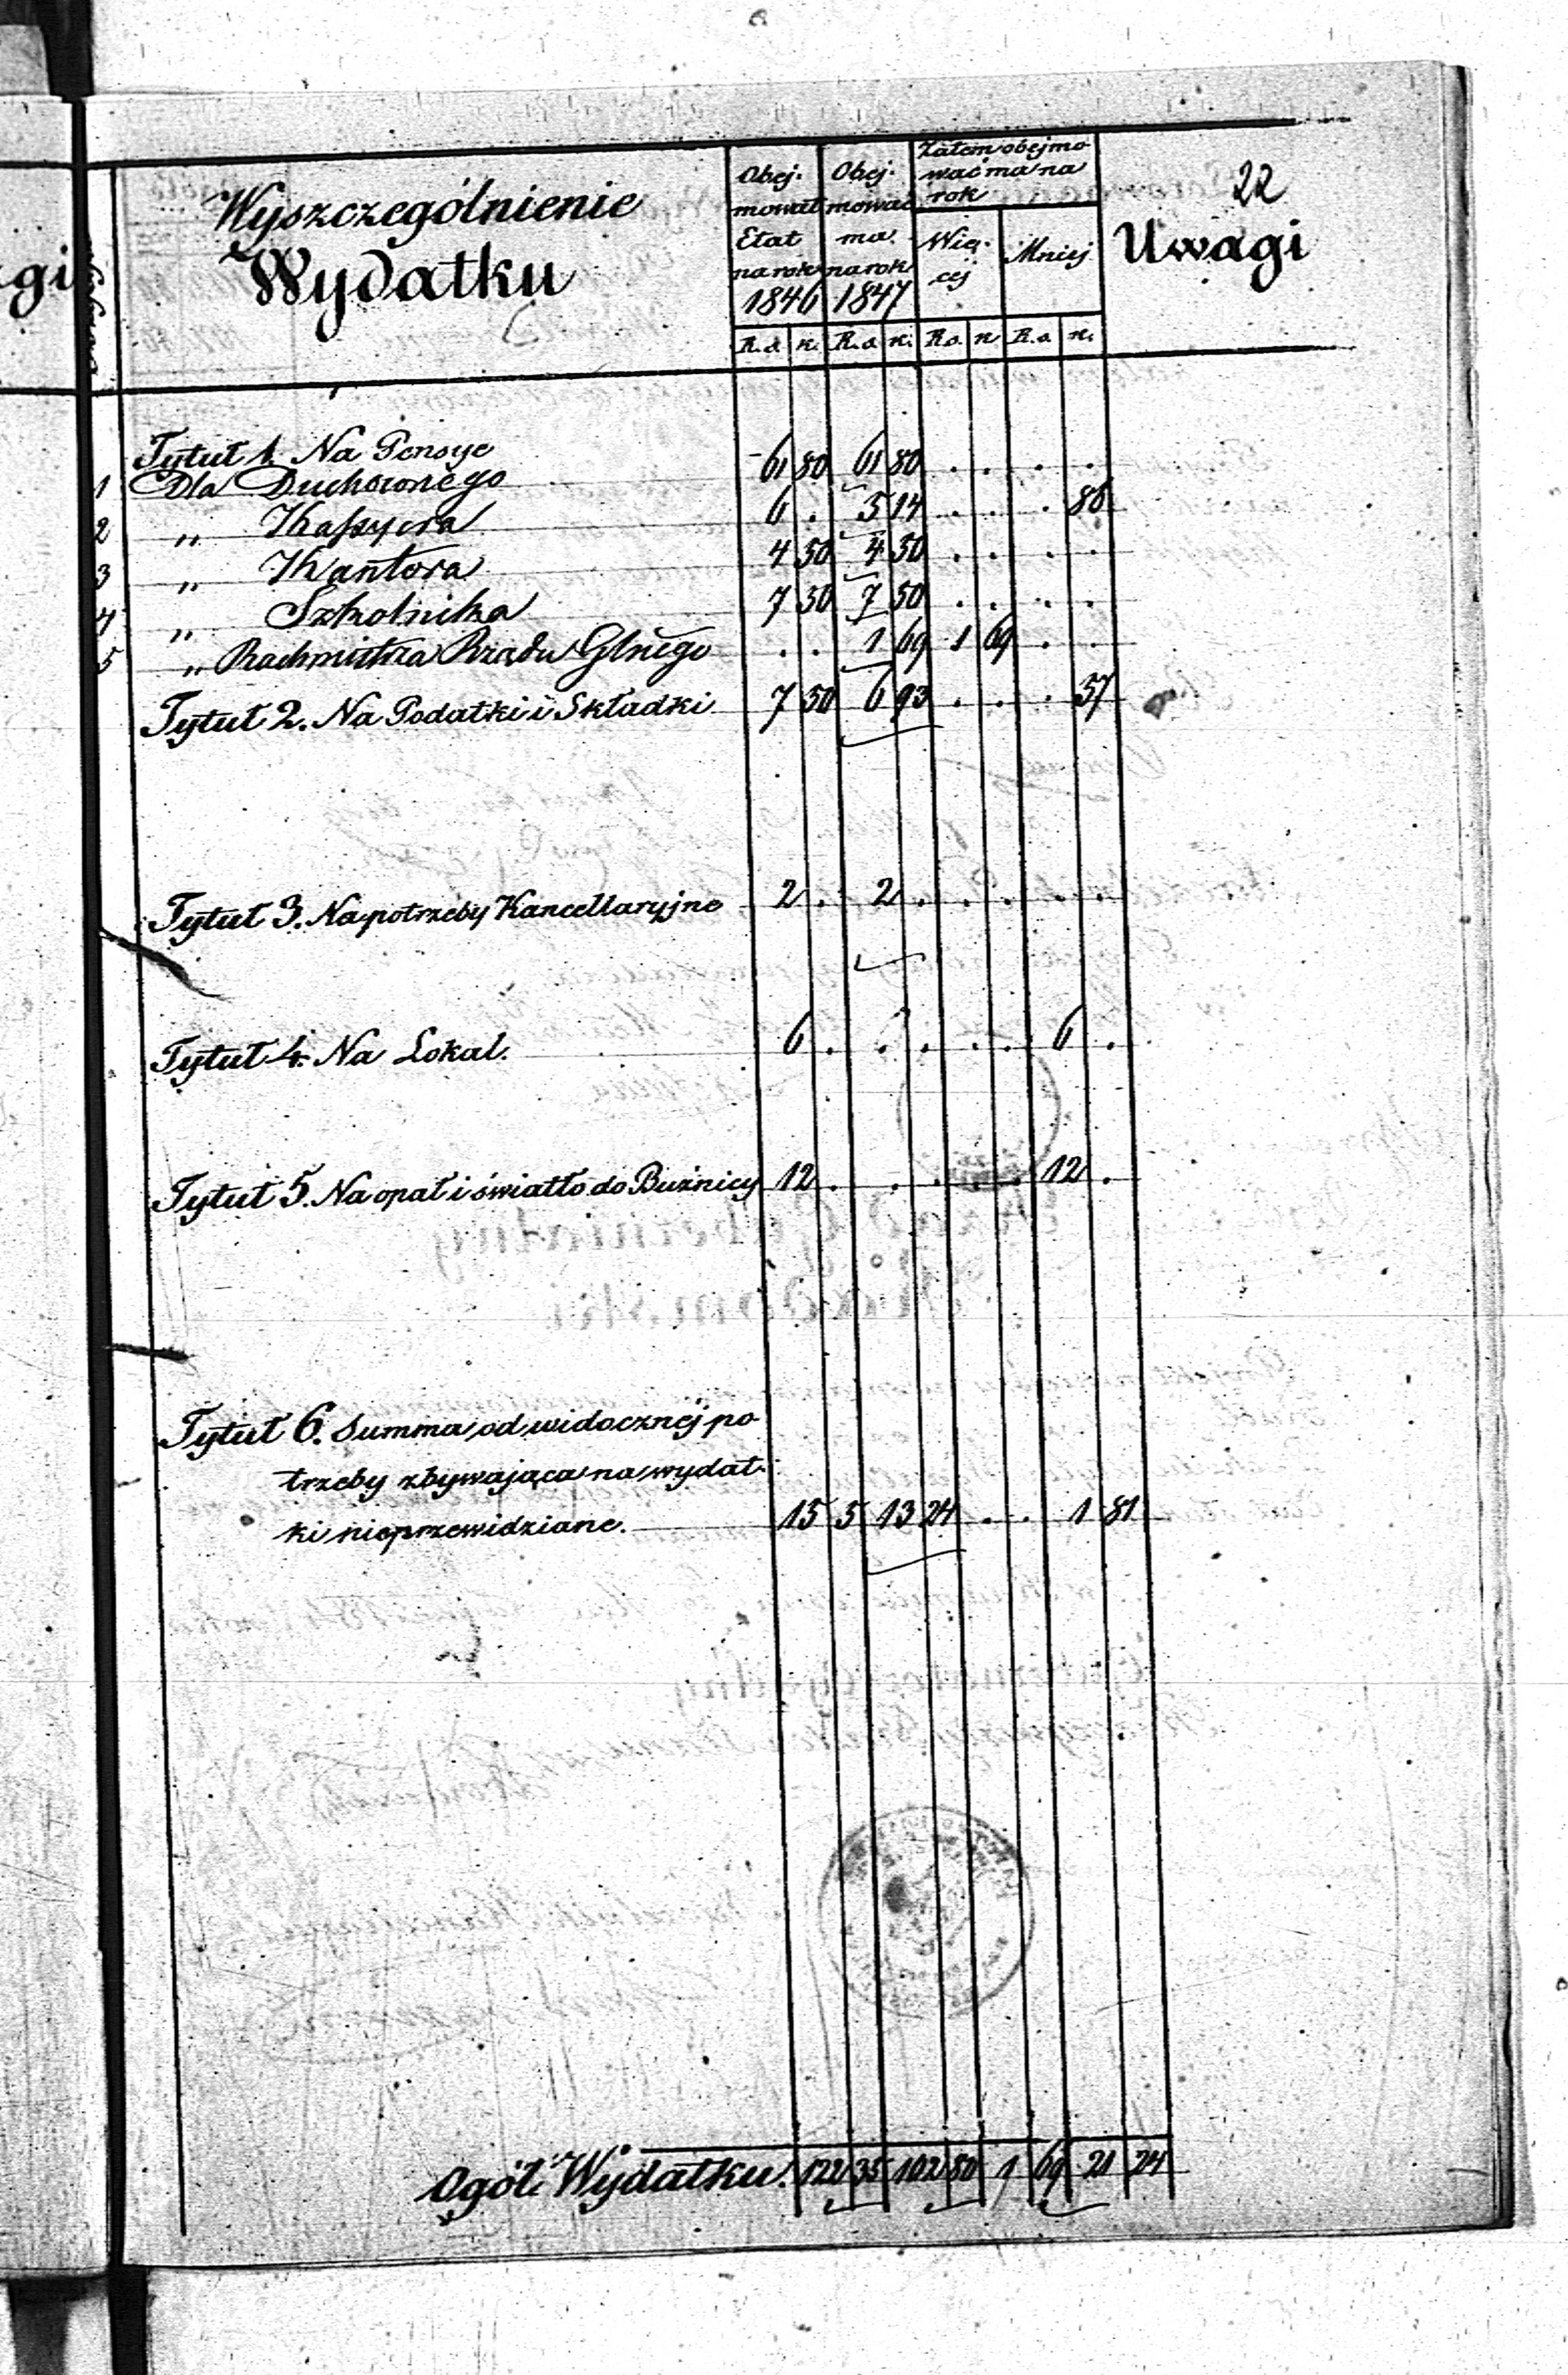 22
Wyszczególnienie
Wydatku
Obej-
mował
Etat
na rok
1846
Obej-
mować
ma
na rok
1847
Zatem obejmo
wać ma na
rok
Wię-
cej
Mniej
Uwagi
R.s. k. R.s. k. R.s. k. R.s. k.
Tytuł 1. Na Pensye
1 Dla Duchownego 61 80 61 80 . . . .
2 „ Kassyera 6 . 5 14 . . . 86
3 „ Kantora 4 50 4 50 . . . .
4 „ Szkolnika 7 50 7 50 . . . .
5 „ Rachmistrza Rządu Glnego . . 1 69 1 69 . .
Tytuł 2. Na Podatki i Składki 7 50 6 93 . . . 57
Tytuł 3. Na potrzeby Kancellaryjne 2 . 2 . . . . .
Tytuł 4. Na Lokal. 6 . . . . . 6 .
Tytuł 5. Na opał i światło do Bużnicy 12 . . . . . 12 .
Tytuł 6. Summa od widocznej po
trzeby zbywająca na wydat-
ki nieprzewidziane. 15 5 13 24 . . 1 81
Ogół Wydatku. 122 35 102 80 1 69 21 24